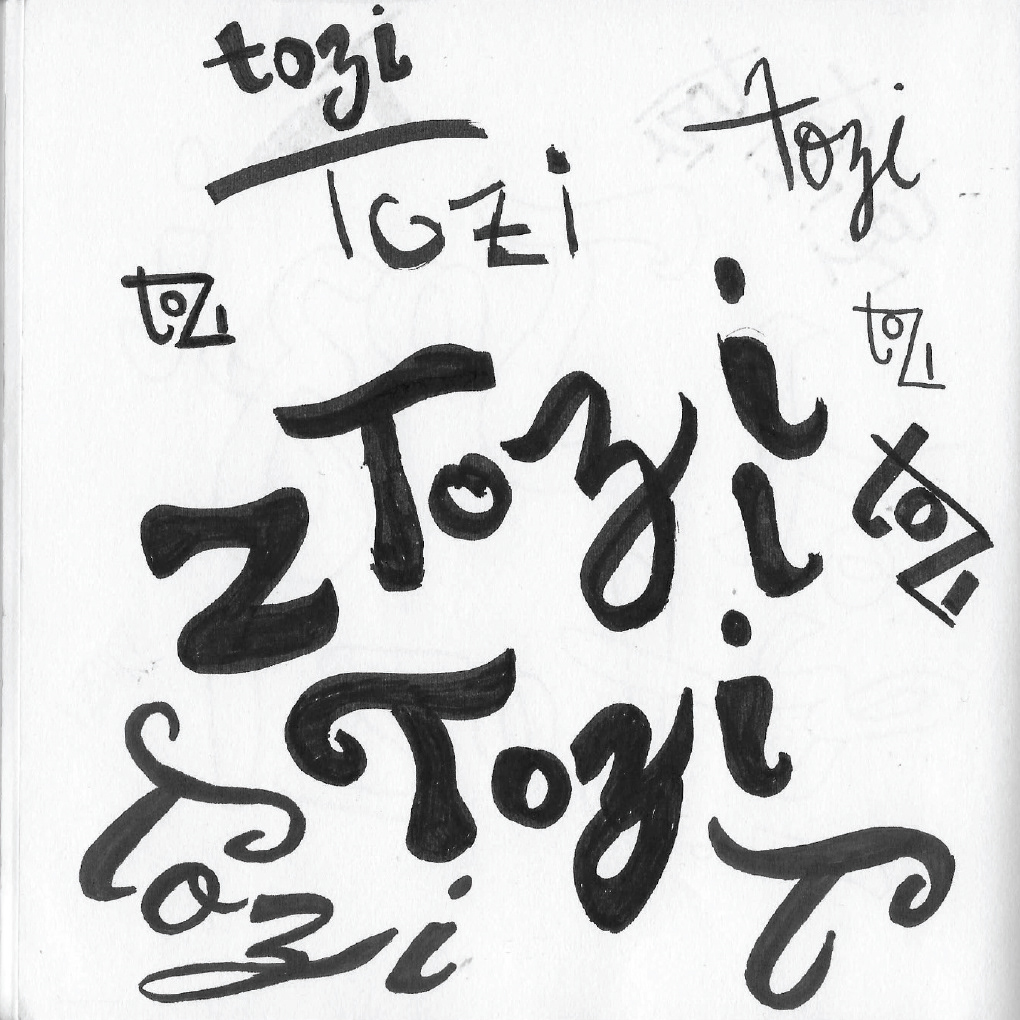 tozi
tozi
Tozi
tozi
tozi
Tozi
tozi
i
z
Tozi
Tozi
T